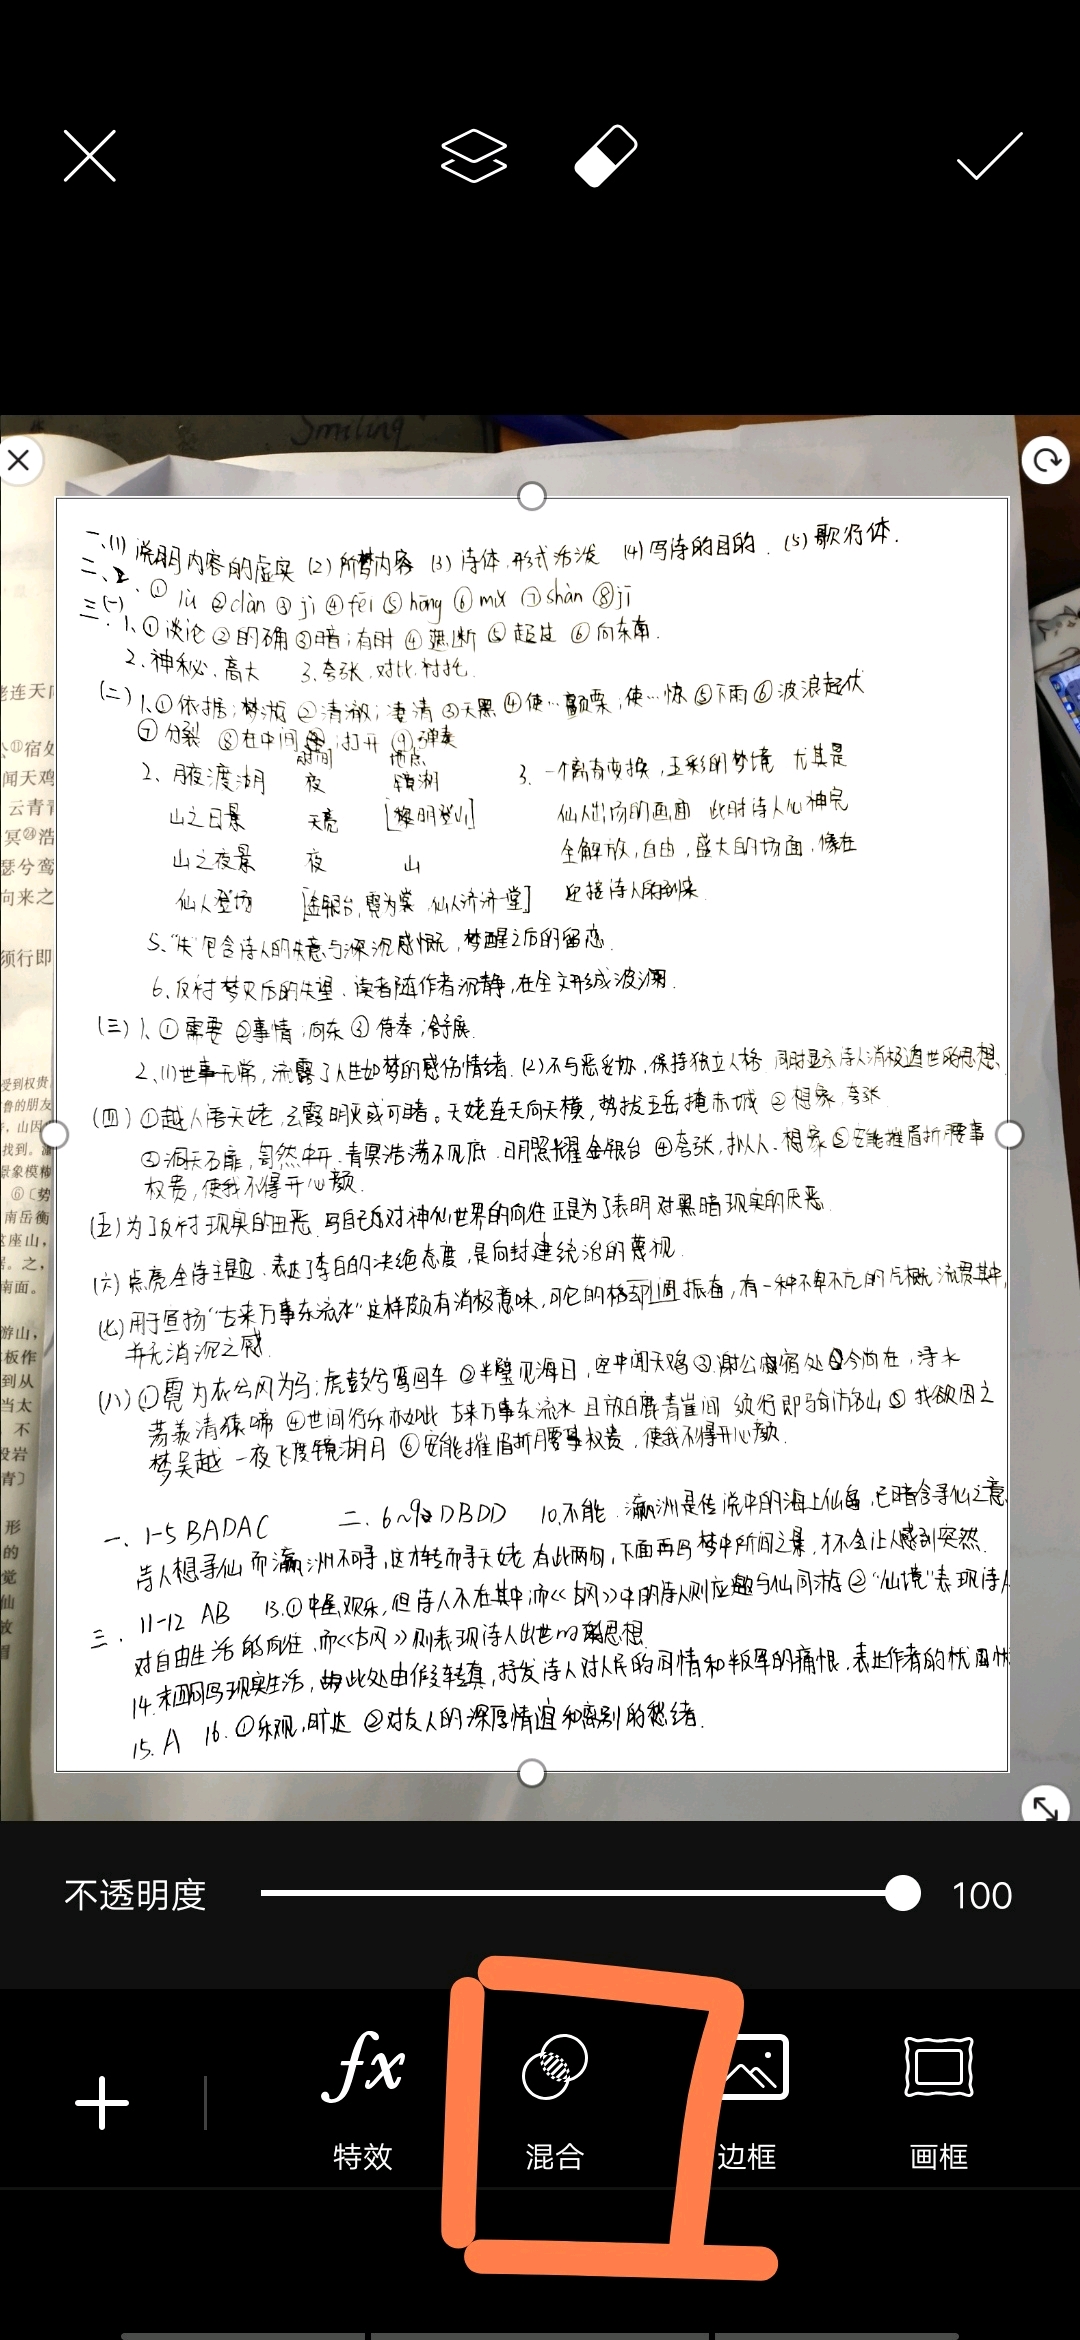 Smiling
一、(1) 说明内容的虚实 (2) 所梦内容 (3) 诗体.形式活泼 (4) 写诗的目的. (5) 歌行体.
二、① lù ② clàn ③ jì ④ fēi ⑤ hōng ⑥ mù ⑦ shàn ⑧ jī
三(一) 1、① 谈论 ② 的确 ③ 暗;有时 ④ 遮断 ⑤ 超过 ⑥ 向东南.
2. 神秘.高大 3. 夸张.对比.衬托
(二) 1、① 依据;梦游 ② 清澈;凄清 ③ 天黑 ④ 使…颤栗,使…惊 ⑤ 下雨 ⑥ 波浪起伏
⑦ 分裂 ⑧ 在中间;打开 ⑨ 弹奏
时间 地点
2、月夜渡湖 夜 镜湖
山之日景 天亮 [黎明登山]
山之夜景 夜 山
仙人登场 [金银台,霓为裳.仙人济济一堂]
3. 一个离奇变换,五彩的梦境 尤其是
仙人出场的画面 此时诗人心神完
全解放,自由,盛大的场面,像在
迎接诗人的到来.
5、"失"包含诗人的失意与深沉感慨,梦醒之后的留恋.
6、反衬梦灭后的失望、读者随作者沉静,在全文形成波澜.
(三) 1、① 需要 ② 事情;向东 ③ 侍奉;舒展.
2、(1) 世事无常,流露了人生如梦的感伤情绪. (2) 不与恶妥协,保持独立人格 同时显示诗人消极遁世的思想.
(四) ① 越人语天姥,云霞明灭或可睹。天姥连天向天横,势拔五岳掩赤城 ② 想象.夸张.
③ 洞天石扉,訇然中开.青冥浩荡不见底.日月照耀金银台 ④ 夸张,拟人.想象 ⑤ 安能摧眉折腰事
权贵,使我不得开心颜.
(五) 为了反衬现实的丑恶.写自己对神仙世界的向往正是为了表明对黑暗现实的厌恶.
(六) 点亮全诗主题.表达了李白的决绝态度,是向封建统治的蔑视.
(七) 用于宣扬"古来万事东流水"这样颇有消极意味,可它的格调却振奋,有一种不卑不亢的气概流贯其中,
并无消沉之感.
(八) ① 霓为衣兮风为马;虎鼓兮鸾回车 ② 半壁见海日,空中闻天鸡 ③ 谢公宿处今尚在,渌水
荡漾清猿啼 ④ 世间行乐亦如此 古来万事东流水 且放白鹿青崖间 须行即骑访名山 ⑤ 我欲因之
梦吴越 一夜飞度镜湖月 ⑥ 安能摧眉折腰事权贵,使我不得开心颜.
一、1-5 BADAC 二、6~9 DBDD 10.不能.瀛洲是传说中的海上仙岛,已暗含寻仙之意
诗人想寻仙而瀛洲不可寻,这才转而寻天姥 有此两句,下面再写梦中所间之景,才不会让人感到突然.
11-12 AB 13.① 中虽欢乐,但诗人不在其中而《古风》中的诗人则应邀与仙同游 ② "仙境"表现诗人
三、对自由生活的向往,而《古风》则表现诗人出世的思想
14.末四句写现实生活,由此处由假转真,抒发诗人对人民的同情和叛军的痛恨.表达作者的忧国忧
15. A 16.① 乐观,旷达 ② 对友人的深厚情谊和离别的愁绪.
不透明度 100
特效 混合 边框 画框